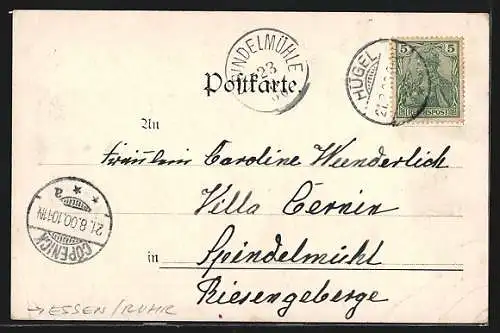 SPINDELMÜHLE
23
Postkarte.
HÜGEL
21.
5 5
REICHSPOST
An
Fräulein Caroline Wunderlich
Villa Cernin
in Spindelmühl
Riesengebirge
COPENICK
21.8.00.10-11N.
* a *
→ ESSEN/RUHR